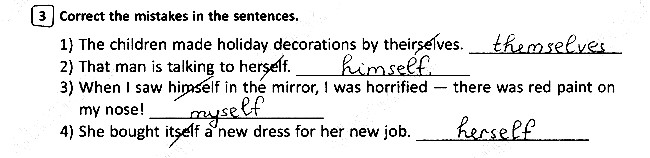 3 Correct the mistakes in the sentences.
1) The children made holiday decorations by theirselves. themselves
2) That man is talking to herself. himself.
3) When I saw himself in the mirror, I was horrified — there was red paint on
my nose! myself
4) She bought itself a new dress for her new job. herself